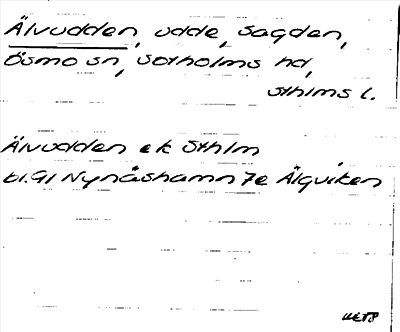 Älvudden, udde, Sagden,
Ösmo sn, Sotholms hd,
Sthlms l.
Älvudden ek Sthlm
bl. 91 Nynäshamn 7e Älgviken